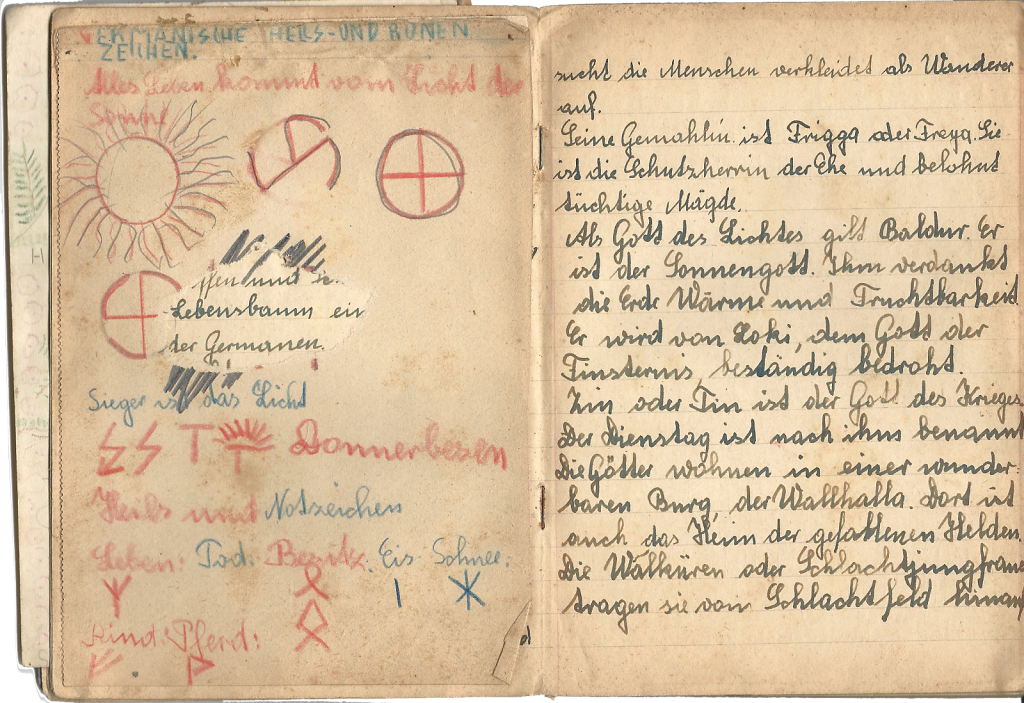 GERMANISCHE HEILS-UND RUNEN
ZEICHEN.
Alles Leben kommt vom Licht der
Sonne
Lebensbaum ein
der Germanen.
Sieger ist das Licht
Donnerbesen
Heils und Notzeichen
Leben: Tod: Besitz: Eis: Schnee:
Rind: Pferd:
sucht die Menschen verkleidet als Wanderer
auf.
Seine Gemahlin ist Frigga oder Freya. Sie
ist die Schutzherrin der Ehe und belohnt
tüchtige Mägde.
Als Gott des Lichtes gilt Baldur. Er
ist der Sonnengott. Ihm verdankt
die Erde Wärme und Fruchtbarkeit.
Er wird von Loki, dem Gott der
Finsternis, beständig bedroht.
Ziu oder Tiu ist der Gott des Krieges
Der Dienstag ist nach ihm benannt
Die Götter wohnen in einer wunder-
baren Burg, der Wallhalla. Dort ist
auch das Heim der gefallenen Helden.
Die Walküren oder Schlachtjungfraue
tragen sie vom Schlachtfeld hinauf